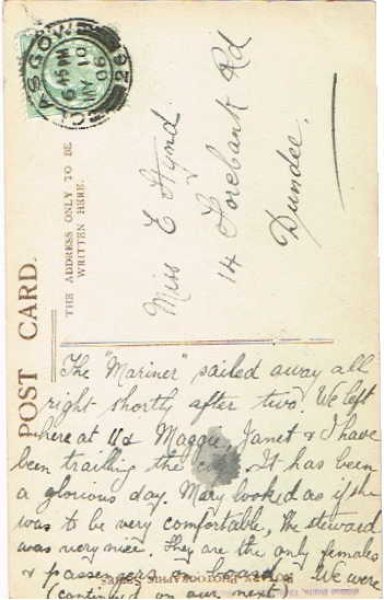 GLASGOW
6 45 PM
MY 10
06
26
POST CARD.
THE ADDRESS ONLY TO BE
WRITTEN HERE.
Miss E Hynd
14 Forebank Rd
Dundee.
The "Mariner" sailed away all
right shortly after two. We left
here at 11 & Maggie, Janet & I have
been trailing the . It has been
a glorious day. Mary looked as if she
was to be very comfortable, the steward
was very nice. They are the only females
& passengers on board. We were
(continued on our next)